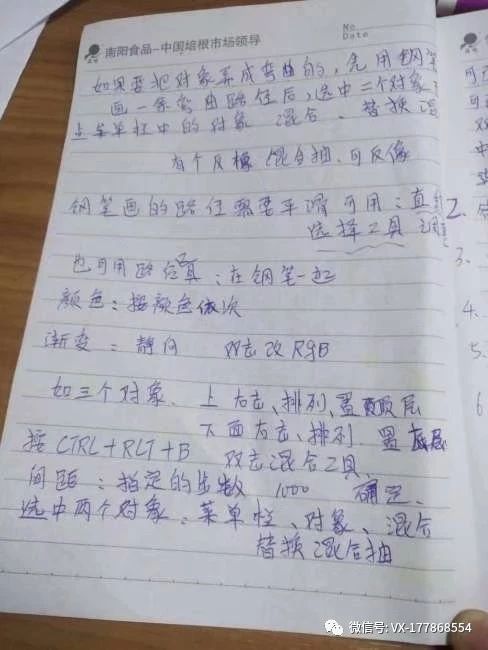 南阳食品-中国培根市场领导
No
Date
如果要把对象弄成弯曲的,先用钢笔
画一条弯曲路径后,选中二个对象
上菜单栏中的对象 混合、替换混
有个反橡混合抽、可反像
钢笔画的路径需要平滑可用:直
选择工具
也可用路径:在钢笔一边
颜色:按颜色依次
渐变:静向 双击改RGB
如三个对象、上 右击、排列、置顶层
下面右击、排列 置底层
按CTRL+RLT+B 双击混合工具、
间距:指定的步数 1000 确定、
选中两个对象:菜单栏、对象、混合
替换混合抽
2.
3.
4.
5.
6
微信号: VX-177868554